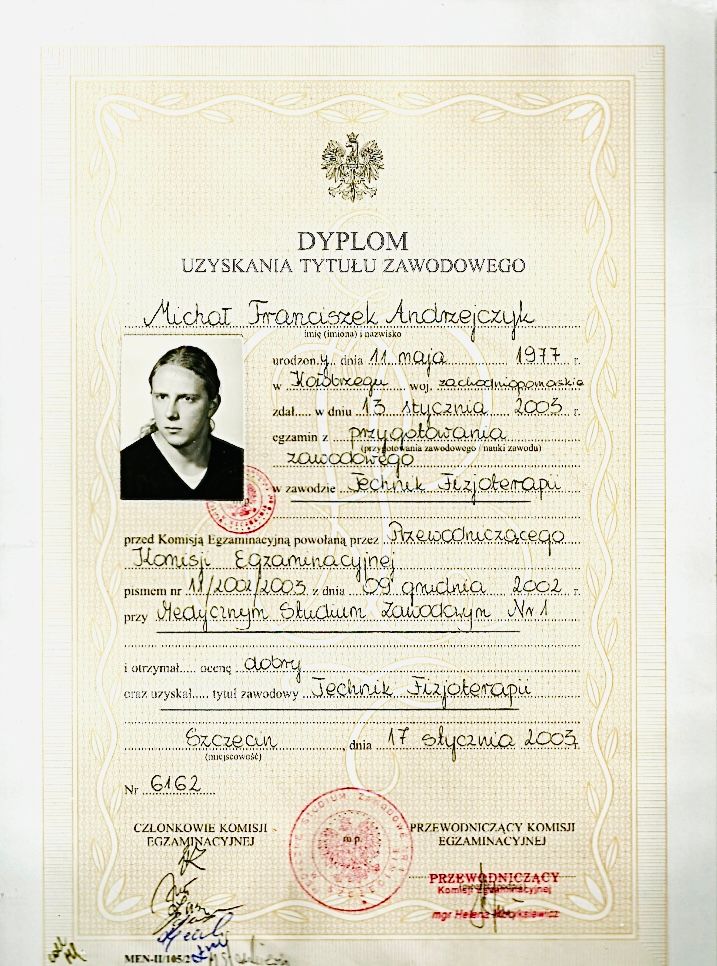 DYPLOM
UZYSKANIA TYTUŁU ZAWODOWEGO
Michał Franciszek Andrzejczyk
imię (imiona) i nazwisko
urodzon.y.. dnia 11 maja 1977 r.
w Kołobrzegu woj. zachodniopomorskie
zdał..... w dniu 13 stycznia 2003 r.
egzamin z przygotowania
(przygotowania zawodowego / nauki zawodu)
zawodowego
w zawodzie Technik Fizjoterapii
przed Komisją Egzaminacyjną powołaną przez Przewodniczącego
Komisji Egzaminacyjnej
pismem nr 11/2002/2003 z dnia 09 grudnia 2002 r.
przy Medycznym Studium Zawodowym Nr 1
i otrzymał..... ocenę dobry
oraz uzyskał..... tytuł zawodowy Technik Fizjoterapii
Szczecin, dnia 17 stycznia 2003 r.
(miejscowość)
Nr 6162
CZŁONKOWIE KOMISJI
EGZAMINACYJNEJ
m.p.
PRZEWODNICZĄCY KOMISJI
EGZAMINACYJNEJ
PRZEWODNICZĄCY
Komisji Egzaminacyjnej
mgr Helena
MEN-II/105/2